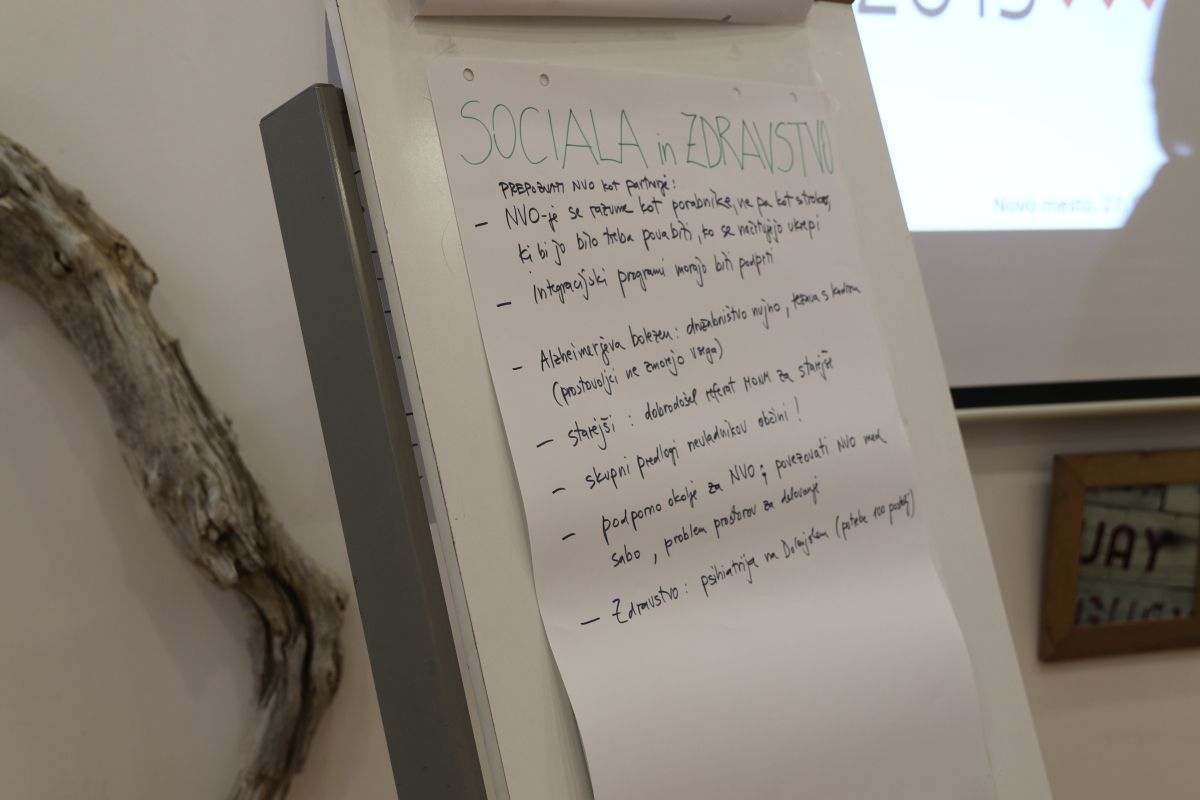 2015
Novo mesto, 27.
SOCIALA in ZDRAVSTVO
PREPOZNATI NVO kot partnerje:
– NVO-je se razume kot porabnike, ne pa kot stroko,
ki bi jo bilo treba povabiti, ko se načrtujejo ukrepi
– Integracijski programi morajo biti podprti
– Alzheimerjeva bolezen: družabništvo nujno, težava s kadrom
(prostovoljci ne zmorejo vsega)
– starejši: dobrodošel referat MONM za starejše
– skupni predlogi nevladnikov občini!
– podporno okolje za NVO; povezovati NVO med
sabo, problem prostorov za delovanje
– Zdravstvo: psihiatrija na Dolenjskem (potreba 100 postelj)
UAY